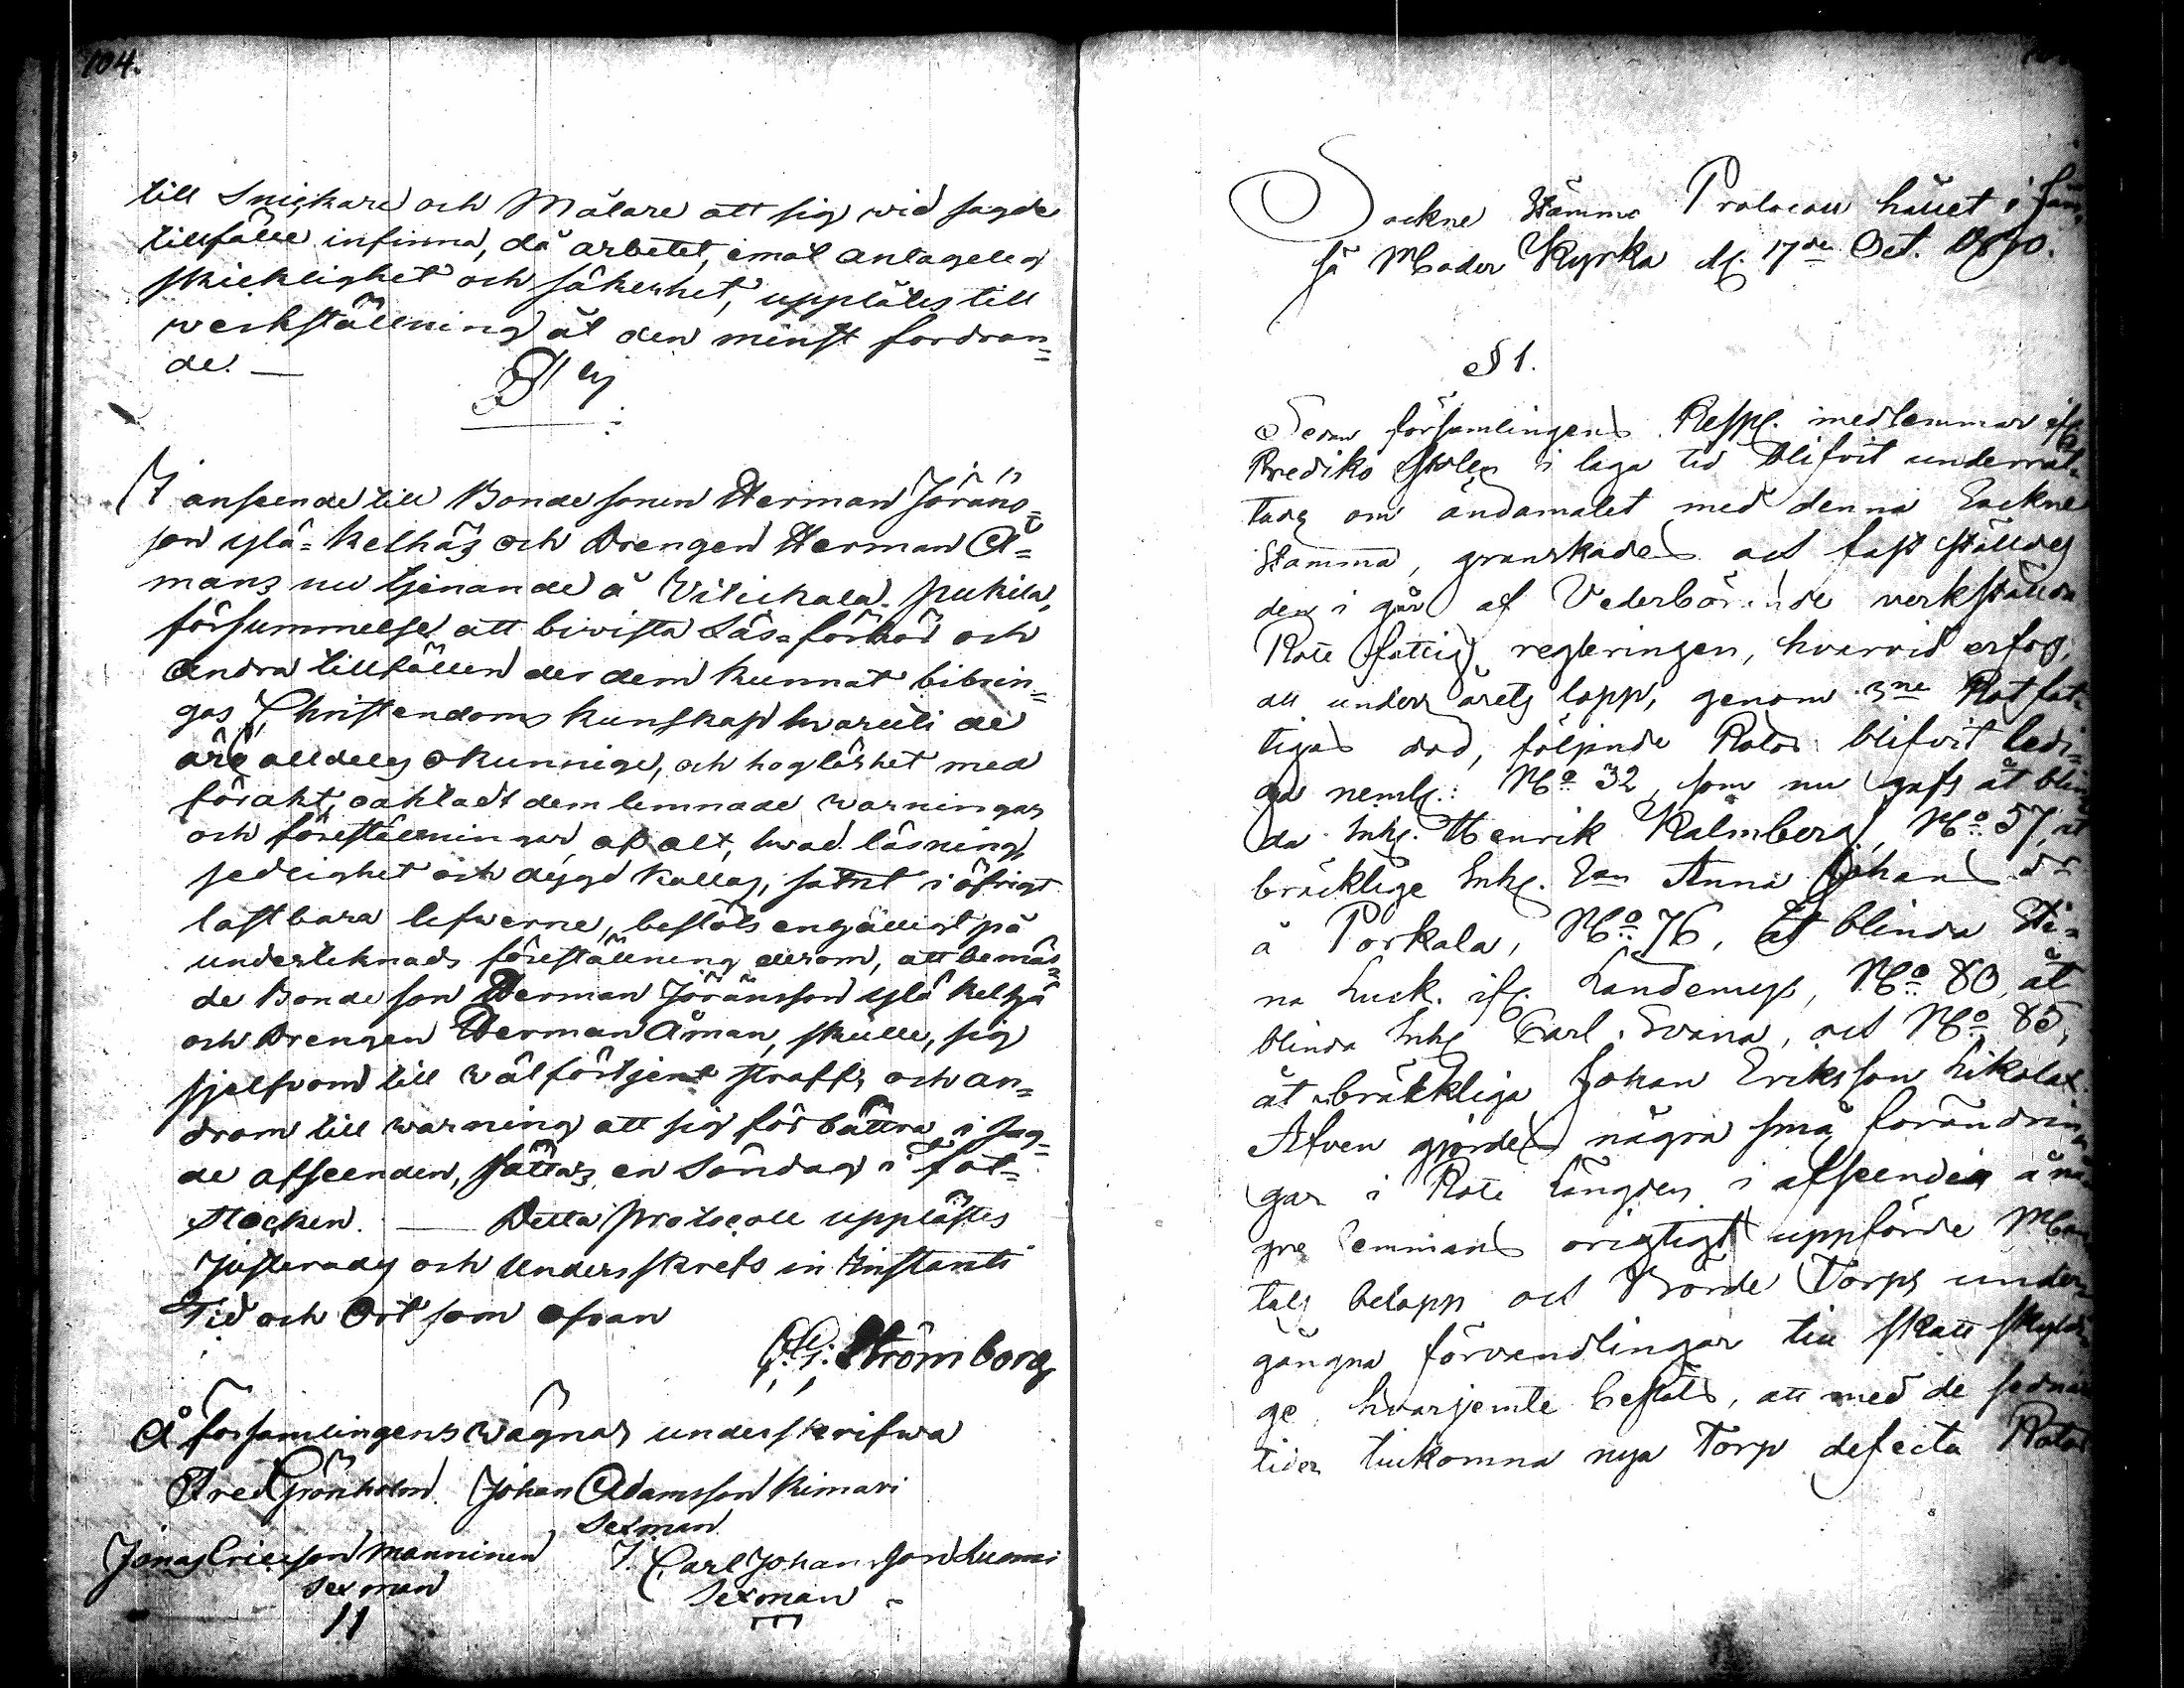 104.
till Snickare och Målare att sig wid sagde
tillfälle infinna, då arbetet, emot antagelig
skicklighet och säkerhet, upplåtes till
werkställning åt den minst fordran=
de. —
§
I anseende till Bonde sonen Herman Jöräns=
son ylä= Kelhäs och Drengen Herman Å=
mans nu tjenande å Vitickala. Pukila,
försummelse att biwista Läs=förhör och
andra tillfällen der dem kunnat bibrin=
gas Christendoms kunskap hwaruti de
äro alldeles okunnige, och hoglöshet med
förakt, oaktadt dem lemnade warningar
och föreställningar, af alt, hwad läsning,
sedlighet och dygd kallas, samt i öfrigt
lastbara lefwerne, beslöts engälligt på
underteknads föreställning derom, att bemäl=
de Bonde son Herman Jöränsson ylä Kelhjä
och Drengen Herman Åman, skulle, sig
sjelfwom till wälförtjent straff, och an=
drom till warning att sig förbättra i sag=
de afseenden, sättas en Söndag i fot=
stocken. — Detta Protocoll upplästes
justerades och underskrefs in Instanti
Tid och Ort som ofvan
Strömborg
Å församlingens wägnar underskrifwa
Fred Grönholm. Johan Adamsson Kimari
Sexman
Jonas Ericsson Manninen J. Carl Johansson Luomi
Sexman Sexman
Sockne Stämmo Protocoll hållet i
så Moder Kyrka d. 17de Oct. 1830.
§ 1.
Sedan församlingens Resp. medlemmar ifr.
Prediko Stolen i laga tid blifvit underrät=
tade om ändamålet med denna Sockne
Stämma, granskades och fast ställdes
den i går af Vederbörande verkstälda
Rote fattig regleringen, hvarvid erfors,
att under årets lopp, genom 3ne Rot fat=
tigas död, följande Rotor blifvit ledi=
ga neml.: No 32, som nu gafs åt blin
da Inh. Henrik Kalmberg, No 57, åt
bräcklige Inh. Anna Johans dr
å Porkala, No 76, åt blinda Sti=
na Luck. ifr. No 80, åt
blinda Inh Carl Svana, och No 85,
åt bräckliga Johan Eriksson Likola.
Äfven gjordes några små förändrin
gar i Rote Längden i afseende å nå
gre hemmans origtigt uppförde Man
tals belopp och Börde Torps under
gångna förvandlingar till skatt skyldi
ge, hvarjemte beslöts, att med de sednare
tider tillkomna nya Torp defecta Rotor